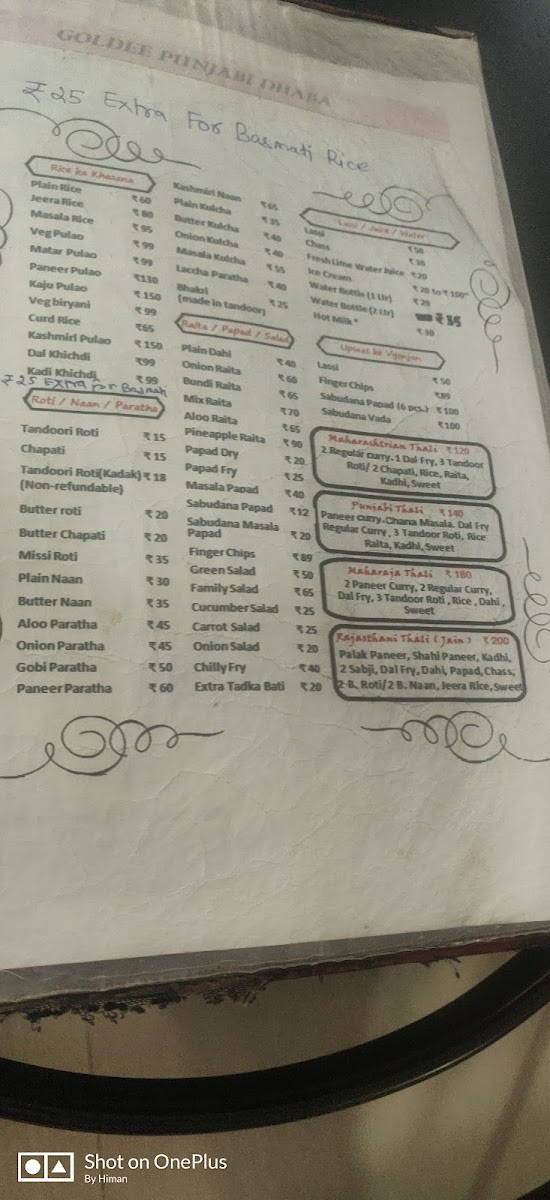 GOLDEE PUNJABI DHABA
₹25 Extra For Basmati Rice
Rice ka Khazana
Plain Rice ₹60
Jeera Rice ₹80
Masala Rice ₹95
Veg Pulao ₹99
Matar Pulao ₹99
Paneer Pulao ₹130
Kaju Pulao ₹150
Veg biryani ₹99
Curd Rice ₹65
Kashmiri Pulao ₹150
Dal Khichdi ₹99
Kadi Khichdi ₹99
₹25 Extra For Basmati
Roti / Naan / Paratha
Tandoori Roti ₹15
Chapati ₹15
Tandoori Roti(Kadak) ₹18
(Non-refundable)
Butter roti ₹20
Butter Chapati ₹20
Missi Roti ₹35
Plain Naan ₹30
Butter Naan ₹35
Aloo Paratha ₹45
Onion Paratha ₹45
Gobi Paratha ₹50
Paneer Paratha ₹60
Kashmiri Naan ₹65
Plain Kulcha ₹35
Butter Kulcha ₹40
Onion Kulcha ₹40
Masala Kulcha ₹55
Laccha Paratha ₹40
Bhakri ₹25
(made in tandoor)
Raita / Papad / Salad
Plain Dahi ₹40
Onion Raita ₹60
Bundi Raita ₹65
Mix Raita ₹70
Aloo Raita ₹65
Pineapple Raita ₹90
Papad Dry ₹20
Papad Fry ₹25
Masala Papad ₹40
Sabudana Papad ₹12
Sabudana Masala ₹20
Papad
Finger Chips ₹89
Green Salad ₹50
Family Salad ₹65
Cucumber Salad ₹25
Carrot Salad ₹25
Onion Salad ₹20
Chilly Fry ₹40
Extra Tadka Bati ₹20
Lassi / Juice / Water
Lassi ₹50
Chass ₹30
Fresh Lime Water Juice ₹20
Ice Cream ₹20 to ₹100*
Water Bottle (1 Ltr) ₹20
Water Bottle (2 Ltr) ₹35
Hot Milk * ₹30
Upwas ke Vyanjan
Lassi ₹50
Finger Chips ₹89
Sabudana Papad (6 pcs.) ₹100
Sabudana Vada ₹100
Maharashtrian Thali ₹120
2 Regular curry, 1 Dal Fry, 3 Tandoor
Roti/ 2 Chapati, Rice, Raita,
Kadhi, Sweet
Punjabi Thali ₹140
Paneer curry, Chana Masala, Dal Fry
Regular Curry, 3 Tandoor Roti, Rice
Raita, Kadhi, Sweet
Maharaja Thali ₹180
2 Paneer Curry, 2 Regular Curry,
Dal Fry, 3 Tandoor Roti, Rice, Dahi,
Sweet
Rajasthani Thali (Jain) ₹200
Palak Paneer, Shahi Paneer, Kadhi,
2 Sabji, Dal Fry, Dahi, Papad, Chass,
2 B. Roti/2 B. Naan, Jeera Rice, Sweet
Shot on OnePlus
By Himan